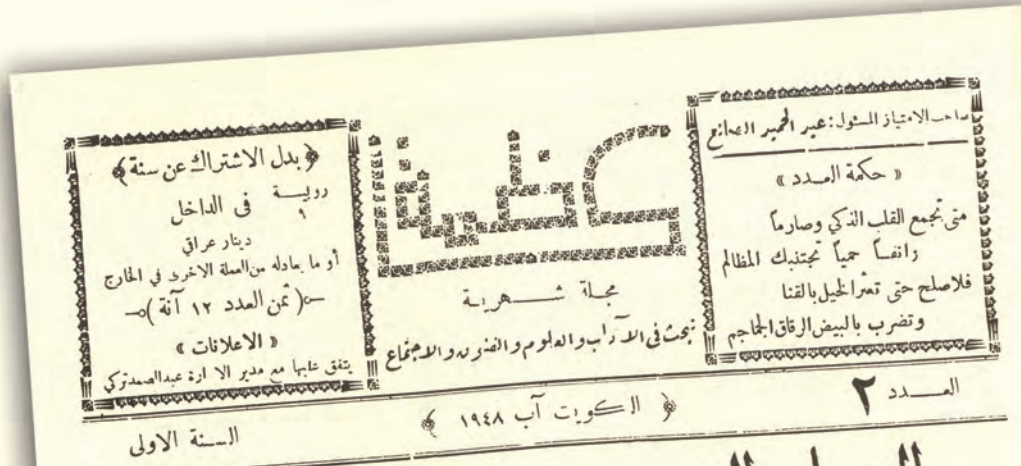 صاحب الامتياز المسئول: عبد الحميد الصانع
« حكمة العدد »
متى تجمع القلب الذكي وصارماً
وانفاً حمياً تجتنبك المظالم
فلاصلح حتى تعثر الخيل بالقنا
وتضرب بالبيض الرقاق الجماجم
كاظمة
مجلة شهرية
تبحث فى الآداب والعلوم والفنون والاجتماع
﴿ بدل الاشتراك عن سنة ﴾
روبية ٩ فى الداخل
دينار عراقي
أو ما يعادله من العملة الاخرى في الخارج
( ثمن العدد ١٢ آنة )
« الاعلانات »
يتفق عليها مع مدير الادارة عبدالصمد تركي
العدد ٢
﴿ الكويت آب ١٩٤٨ ﴾
السنة الاولى